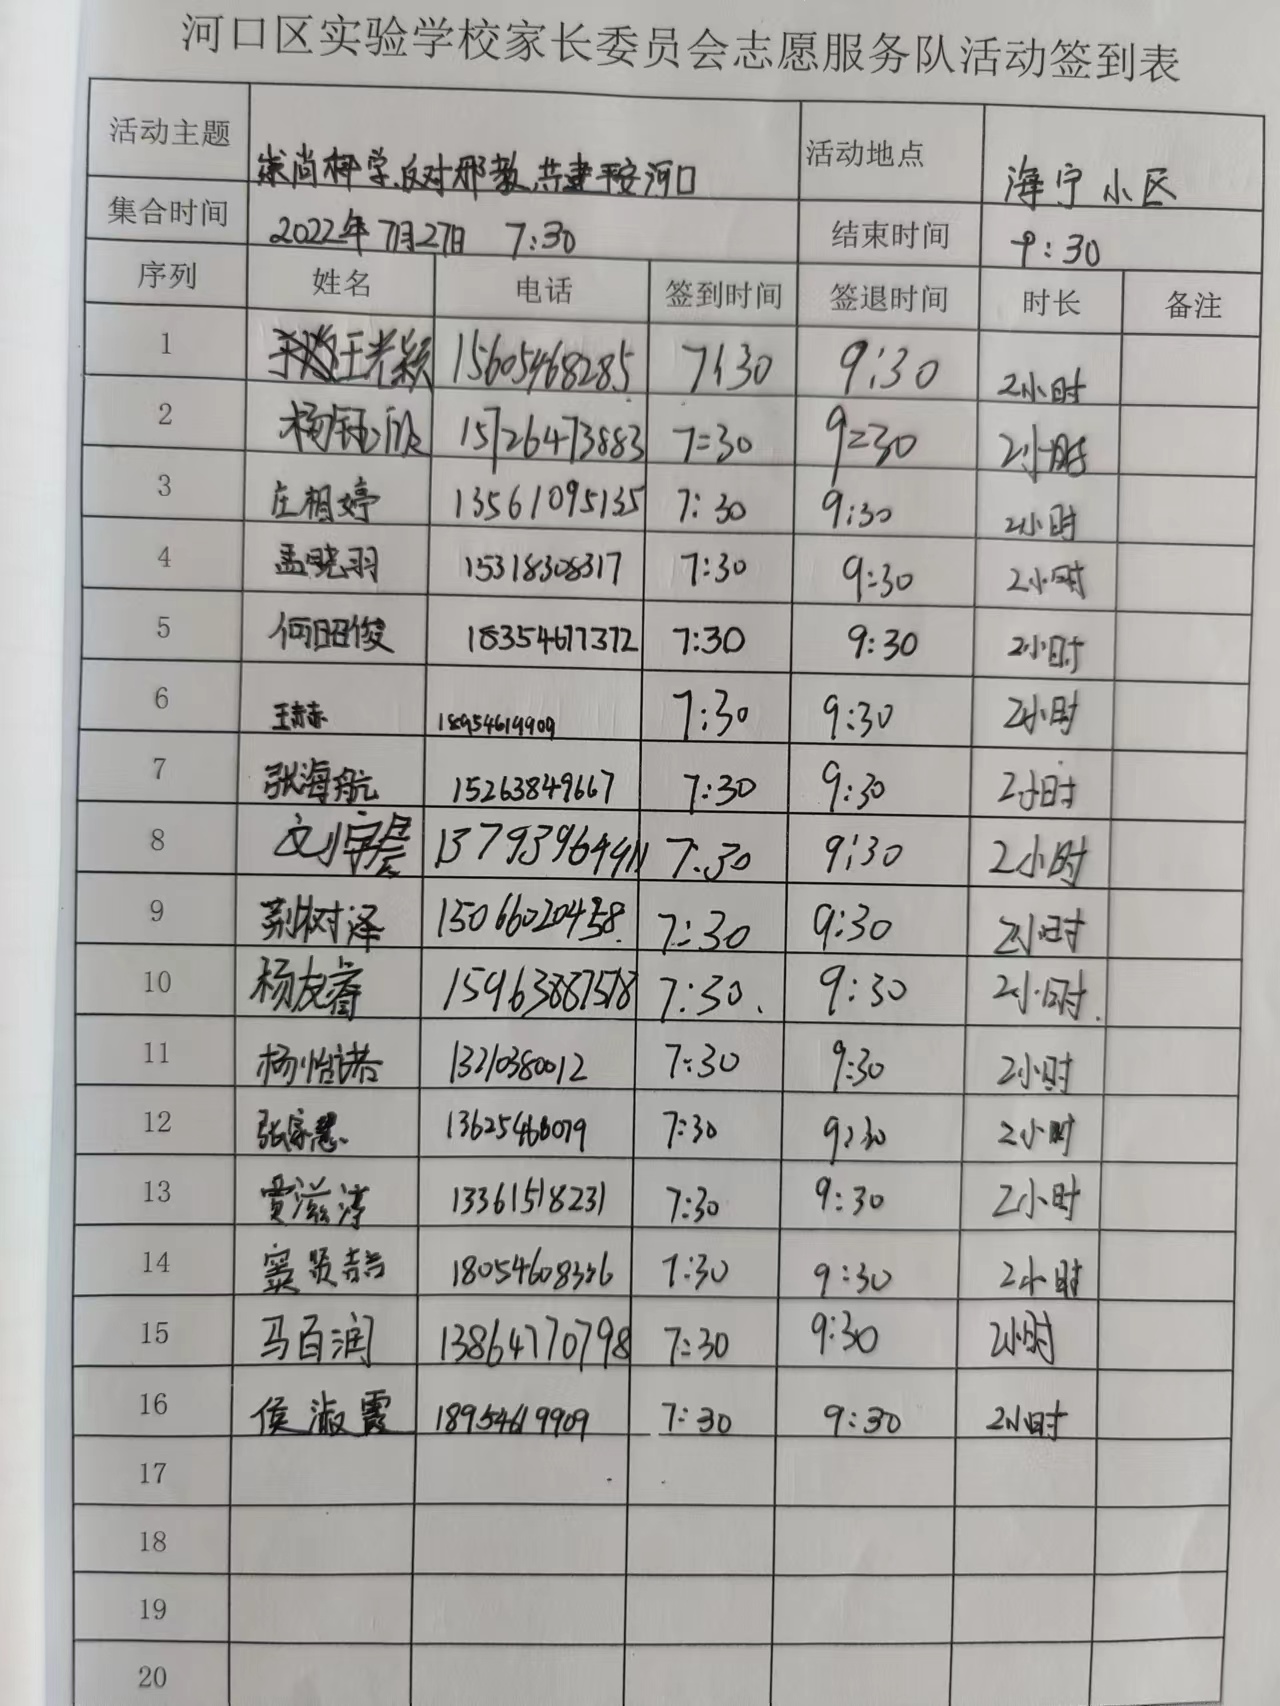 河口区实验学校家长委员会志愿服务队活动签到表
活动主题 崇尚科学,反对邪教,共建平安河口 活动地点 海宁小区
集合时间 2022年7月27日 7:30 结束时间 9:30
序列 姓名 电话 签到时间 签退时间 时长 备注
1 王光颖 15605468285 7:30 9:30 2小时
2 杨钰欣 15726473883 7:30 9:30 2小时
3 庄相婷 13561095135 7:30 9:30 2小时
4 孟晓羽 15318308317 7:30 9:30 2小时
5 何昭俊 18354677372 7:30 9:30 2小时
6 王赫赫 18954619909 7:30 9:30 2小时
7 张海航 15263849667 7:30 9:30 2小时
8 7:30 9:30 2小时
9 荆树泽 15066020458 7:30 9:30 2小时
10 杨友睿 15963887578 7:30. 9:30 2小时.
11 杨怡诺 7:30 9:30 2小时
12 张家慧 13625466079 7:30 9:30 2小时
13 贾滋涛 13361518231 7:30 9:30 2小时
14 窦贤喆 7:30 9:30 2小时
15 马百润 13864770798 7:30 9:30 2小时
16 侯淑霞 18954619909 7:30 9:30 2小时
17
18
19
20